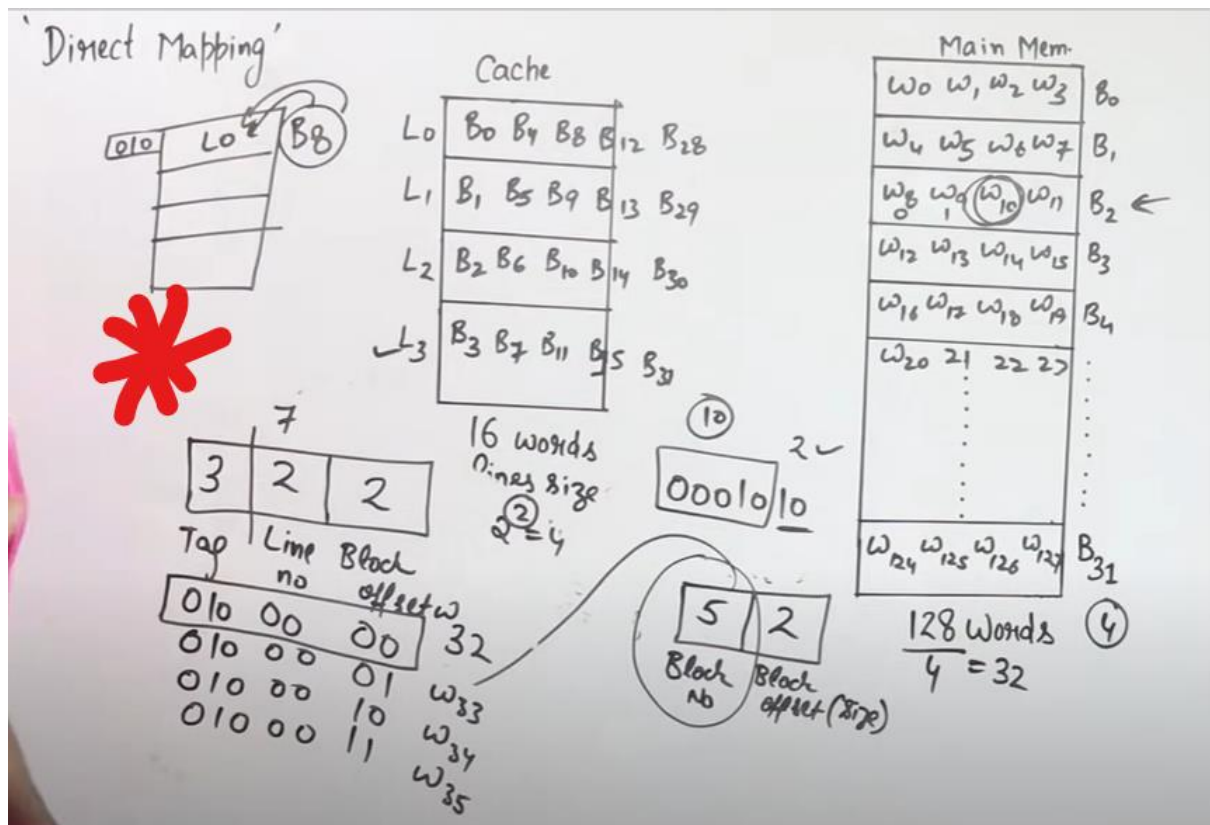 'Direct Mapping'
010 L0 B8
Cache
L0 B0 B4 B8 B12 B28
L1 B1 B5 B9 B13 B29
L2 B2 B6 B10 B14 B30
L3 B3 B7 B11 B15 B31
16 words
Lines size
2² = 4
Main Mem.
W0 W1 W2 W3 B0
W4 W5 W6 W7 B1
W8 W9 W10 W11 B2
0 1
W12 W13 W14 W15 B3
W16 W17 W18 W19 B4
W20 21 22 23
W124 W125 W126 W127 B31
128 Words 4
4 = 32
7
3 2 2
Tag Line no Block offset
010 00 00 W32
010 00 01 W33
010 00 10 W34
010 00 11 W35
10
00010 10 2
5 2
Block No
Block offset (Size)